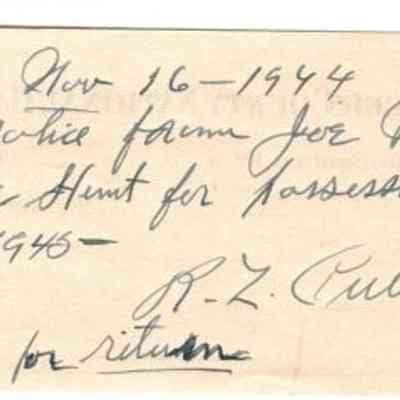 Nov 16-1944
from Joe
Hunt for possess
1945-
R. L.
for return